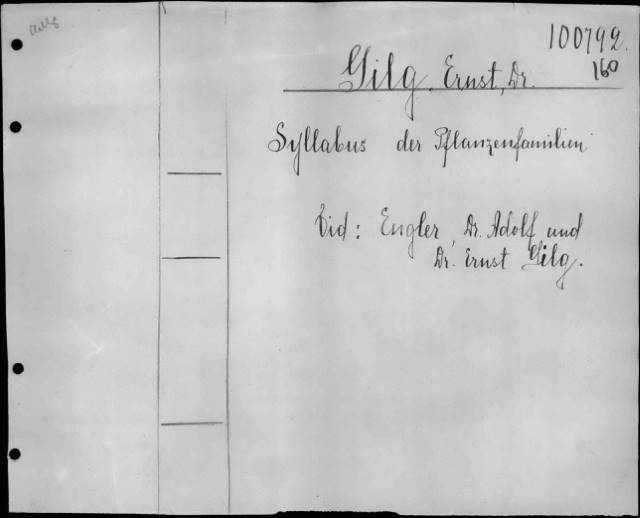 100792.
160
Gilg, Ernst, Dr.
Syllabus der Pflanzenfamilien
Vid: Engler, Dr. Adolf und
Dr. Ernst Gilg.